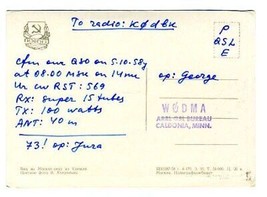 To radio: KØDBK
P
QSL
E
Cfm our QSO on 5.10.58g
at 08.00 MSK on 14mc
Ur cw RST: 569
Rx: super 15 tubes
TX: 100 watts
ANT: 40 m
73! op: Jura
op: George
WØDMA
BUREAU
CALEDONIA, MINN.